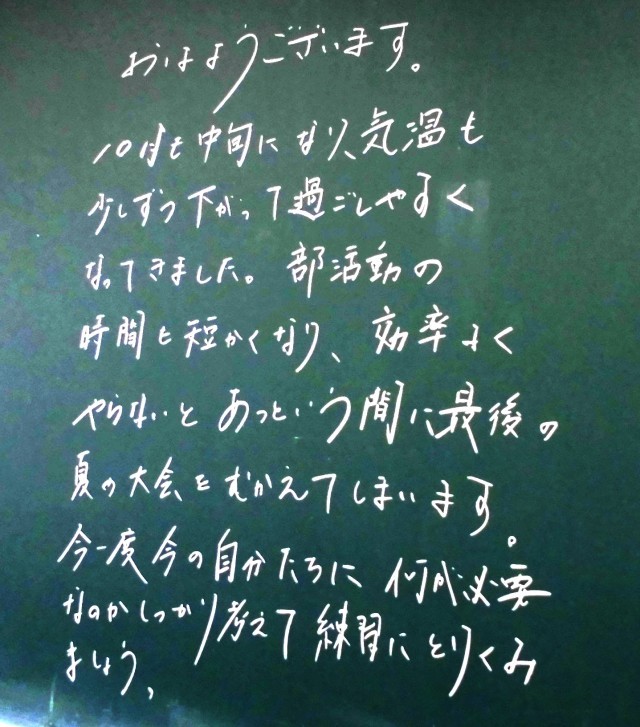 おはようございます。
10月も中旬になり、気温も
少しずつ下がって過ごしやすく
なってきました。部活動の
時間も短かくなり、効率よく
やらないとあっという間に最後の
夏の大会をむかえてしまいます。
今一度今の自分たちに何が必要
なのかしっかり考えて練習にとりくみ
ましょう。